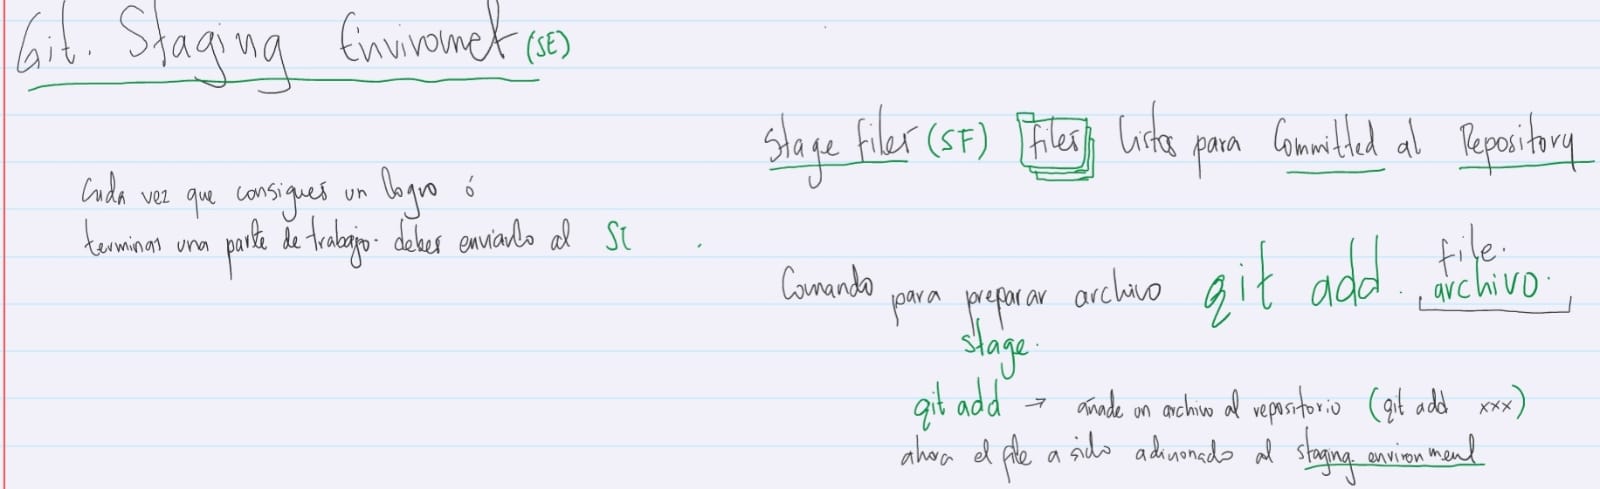 Git. Staging Enviromet (SE)
Cada vez que consigues un logro ó
terminas una parte de trabajo. debes enviarlo al SE
Stage files (SF) files listos para Committed al Repository
Comando para preparar archivo git add. file.
archivo.
stage.
git add → añade un archivo al repositorio (git add xxx)
ahora el file a sido adicionado al staging environment